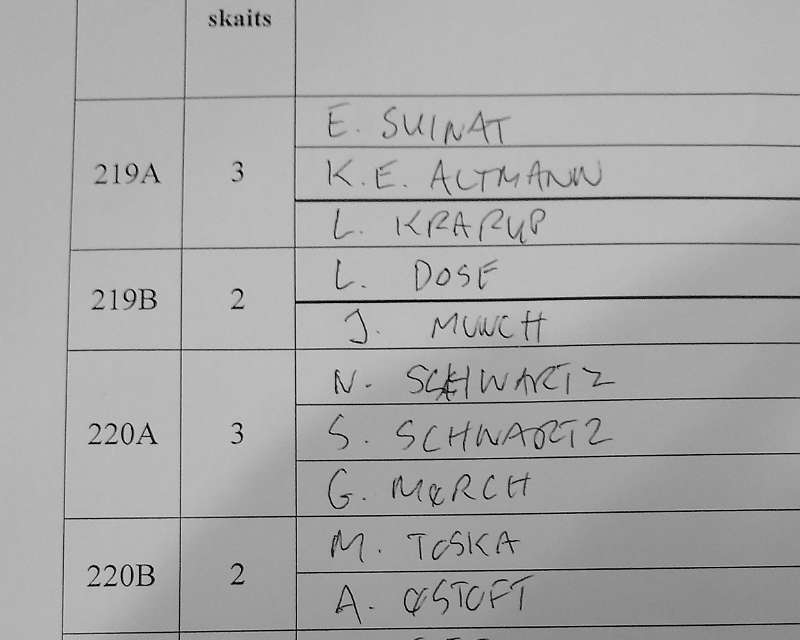 skaits
219A 3 E. SUINAT
K.E. ALTMANN
L. KRARUP
219B 2 L. DOSE
J. MUNCH
220A 3 N. SCHWARTZ
S. SCHWARTZ
G. MØRCH
220B 2 M. TOSKA
A. ØSTOFT